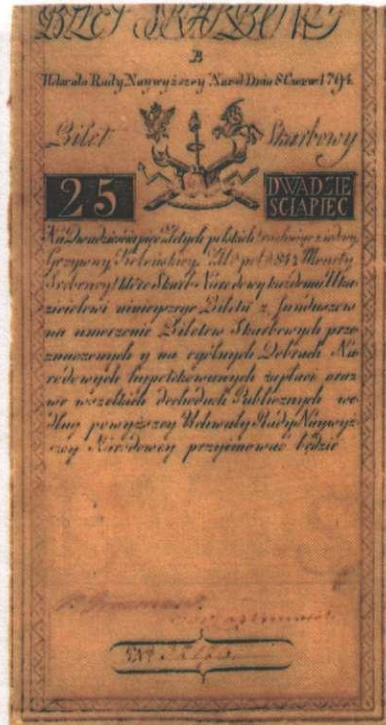 BILET SKARBOWY
B
Uchwała Rady Naywyższey Narod: Dnia 8 Czerw: 1794.
Bilet Skarbowy
25 DWADZIE
SCIAPIEC
Na Dwadzieścia pięć Złotych polskich rachuiąc z iedney
Grzywny Kolońskiey Zł: pol: 84½ Monety
Srebrney; które Skarb Narodowy każdemu Uka-
zicielowi ninieyszego Biletu z funduszow
na umorzenie Biletow Skarbowych prze-
znaczonych y na ogólnych Dobrach Na-
rodowych hypotekowanych zapłaci oraz
we wszelkich dochodach Publicznych we-
dług powyższey Uchwały Rady Naywyż-
szey Narodowey przyjmować będzie